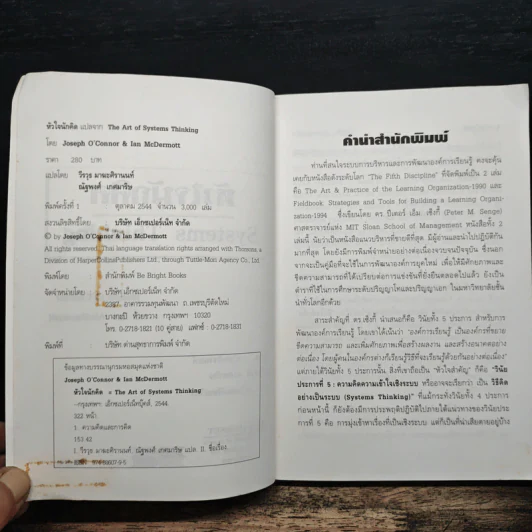 หัวใจนักคิด แปลจาก The Art of Systems Thinking
โดย Joseph O'Connor & Ian McDermott
ราคา 280 บาท
แปลโดย วีรวุธ มาฆะศิรานนท์
ณัฐพงศ์ เกศมาริษ
พิมพ์ครั้งที่ 1 ตุลาคม 2544 จำนวน 3,000 เล่ม
สงวนลิขสิทธิ์โดย บริษัท เอ็กซเปอร์เน็ท จำกัด
© by Joseph O'Connor & Ian McDermott
All rights reserved. Thai language translation rights arranged with Thorsons, a
Division of HarperCollinsPublishers Ltd., through Tuttle-Mori Agency Co. Ltd
พิมพ์โดย สำนักพิมพ์ Be Bright Books
จัดจำหน่ายโดย บริษัท เอ็กซเปอร์เน็ท จำกัด
อาคารรวมทุนพัฒนา ถ.เพชรบุรีตัดใหม่
บางกะปิ ห้วยขวาง กรุงเทพฯ 10320
โทร. 0-2718-1821 (10 คู่สาย) แฟกซ์ : 0-2718-1831
พิมพ์ที่ บริษัท ด่านสุทธาการพิมพ์ จำกัด
ข้อมูลทางบรรณานุกรมหอสมุดแห่งชาติ
Joseph O'Connor & Ian McDermott
หัวใจนักคิด = The Art of Systems Thinking
--กรุงเทพฯ: เอ็กซเปอร์เน็ทบุ๊คส์, 2544.
322 หน้า
1. ความคิดและการคิด
153.42
1. วีรวุธ มาฆะศิรานนท์ ณัฐพงศ์ เกศมาริษ II. ชื่อเรื่อง
คำนำสำนักพิมพ์
ท่านที่สนใจระบบการบริหารและการพัฒนาองค์การเรียนรู้ คงจะคุ้น
เคยกับหนังสือดังระดับโลก "The Fifth Discipline" ที่จัดพิมพ์เป็น 2 เล่ม
คือ The Art & Practice of the Learning Organization-1990 และ
Fieldbook: Strategies and Tools for Building a Learning Organi-
zation-1994 ซึ่งเขียนโดย ดร.ปีเตอร์ เอ็ม. เซ็งกี้ (Peter M. Senge)
ศาสตราจารย์แห่ง MIT Sloan School of Management หนังสือทั้ง 2
เล่มนี้ นับว่าเป็นหนังสือแนวบริหารที่ขายดีที่สุด มีผู้อ่านและนำไปปฏิบัติกัน
มากที่สุด โดยยังมีการพิมพ์จำหน่ายอย่างต่อเนื่องจวบจนปัจจุบัน ซึ่งนอก
จากจะเป็นคู่มือที่จะใช้ในการพัฒนาองค์การยุคใหม่ เพื่อให้มีศักยภาพและ
ขีดความสามารถที่ได้เปรียบต่อการแข่งขันที่ยั่งยืนตลอดไปแล้ว ยังเป็น
ตำราที่ใช้ในการศึกษาระดับปริญญาโทและปริญญาเอก ในมหาวิทยาลัยชั้น
นำทั่วโลกอีกด้วย
สาระสำคัญที่ ดร.เซ็งกี้ นำเสนอก็คือ วินัยทั้ง 5 ประการ สำหรับการ
พัฒนาองค์การเรียนรู้ โดยเขาได้เน้นว่า "องค์การเรียนรู้ เป็นองค์การที่ขยาย
ขีดความสามารถ และเพิ่มศักยภาพเพื่อสร้างผลงาน และสร้างอนาคตอย่าง
ต่อเนื่อง โดยผู้คนในองค์กรต่างก็เรียนรู้วิธีที่จะเรียนรู้ด้วยกันอย่างต่อเนื่อง"
แต่ภายใต้วินัยทั้ง 5 ประการนั้น สิ่งที่เขาถือเป็น "หัวใจสำคัญ" ก็คือ "วินัย
ประการที่ 5 : ความคิดความเข้าใจเชิงระบบ หรืออาจจะเรียกว่า เป็น วิธีคิด
อย่างเป็นระบบ (Systems Thinking)" ที่แม้กระทั่งวินัยทั้ง 4 ประการ
ก่อนหน้านี้ ก็ยังต้องมีการประพฤติปฏิบัติไปภายใต้แนวทางของวินัยประ
การที่ 5 คือ การมุ่งเข้าหาเรื่องที่เป็นเชิงระบบ แต่ก็เป็นที่น่าเสียดายอยู่บ้าง